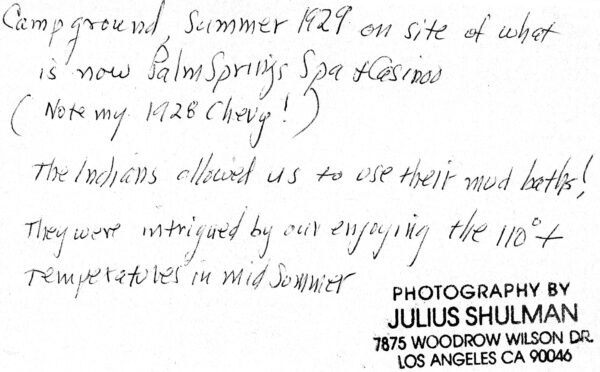 Campground, Summer 1929 on site of what
is now Palm Springs Spa + Casinos
(Note my 1928 Chevy!)
The Indians allowed us to use their mud baths!
They were intrigued by our enjoying the 110°+
temperatures in mid Summer
PHOTOGRAPHY BY
JULIUS SHULMAN
7875 WOODROW WILSON DR.
LOS ANGELES CA 90046